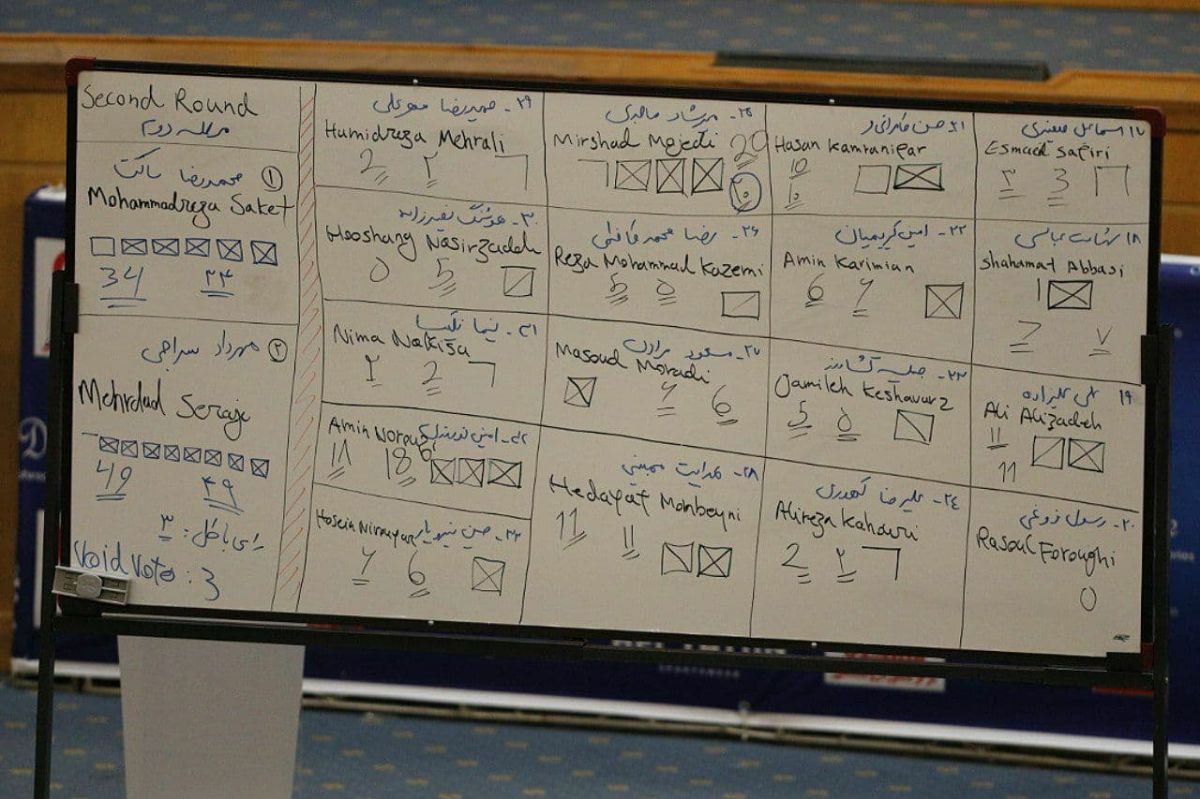 Second Round
مرحله دوم
محمدرضا ساکت ①
Mohammadreza Saket
34 ۳۴
مهرداد سراجی ②
Mehrdad Seraje
49 ۴۹
رأی باطل: ۳
Void Vote: 3
۲۹- حمیدرضا مهرعلی
Humidreza Mehrali
2 ۲
۳۰- هوشنگ نصیرزاده
Hooshang Nasirzadeh
۵ 5
۳۱- نیما نکیسا
Nima Nakisa
۲ 2
۳۲-
Amin
۱۸ 18
۳۳- حسین
Hosein
۶ 6
۲۵- میرشاد ماجدی
Mirshad Mejedi
20
۲۶- رضا محمدکاظمی
Reza Mohammad Kazemi
5 ۵
۲۷- مسعود مرادی
Masoud Moradi
۶ 6
۲۸- هدایت ممبینی
Hedayat Monbeyni
11 ۱۱
۲۱- حسن
Hasan Kamranifar
10
۱۰
۲۲- امین کریمیان
Amin Karimian
6 ۶
۲۳- جمیله
Jamileh Keshavarz
5 ۵
۲۴- علیرضا کهوری
Alireza Kahouri
2 ۲
۱۷ اسماعیل صفیری
Esmael Safiri
۳ 3
۱۸ شهامت عباسی
Shahamat Abbasi
7 ۷
۱۹ علی علیزاده
Ali Alizadeh
۱۱
11
۲۰- رسول فروغی
Rasoul Foroughi
0